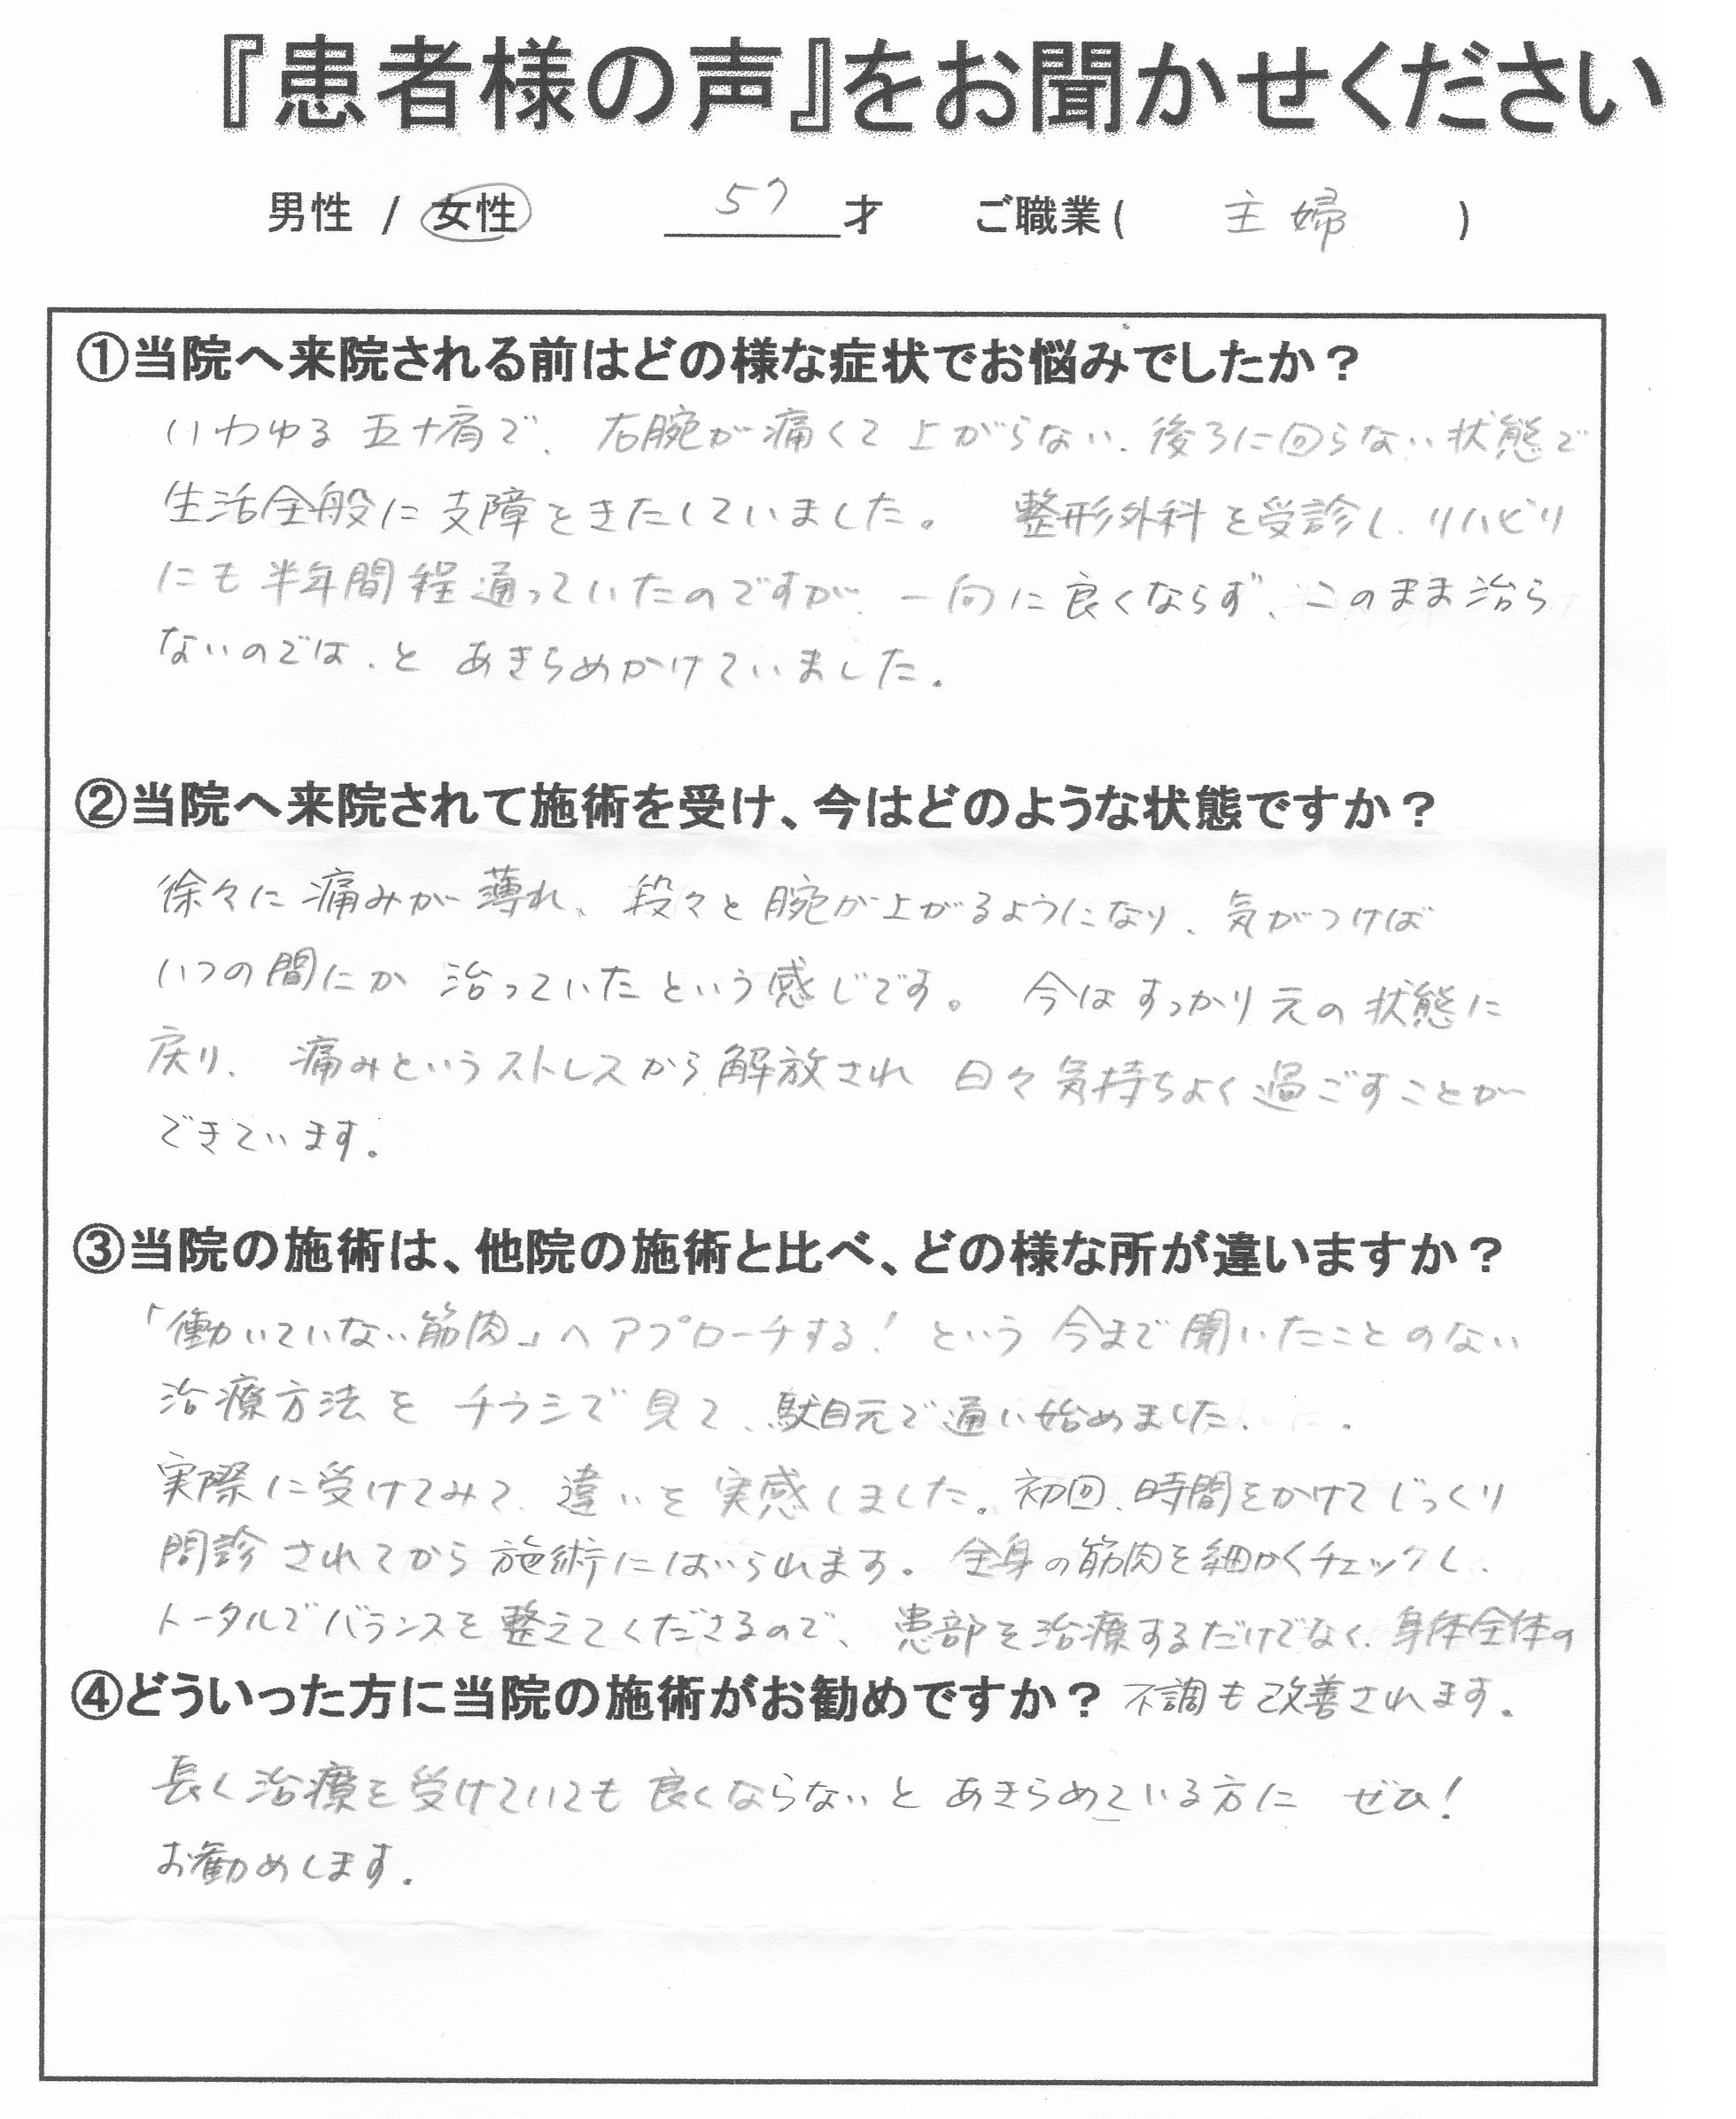 『患者様の声』をお聞かせください
男性 / 女性　57才　ご職業(　主婦　)
①当院へ来院される前はどの様な症状でお悩みでしたか？
いわゆる五十肩で、右腕が痛くて上がらない、後ろに回らない状態で
生活全般に支障をきたしていました。　整形外科を受診し、リハビリ
にも半年間程通っていたのですが、一向に良くならず、このまま治ら
ないのでは、とあきらめかけていました。
②当院へ来院されて施術を受け、今はどのような状態ですか？
徐々に痛みが薄れ、段々と腕が上がるようになり、気がつけば
いつの間にか治っていたという感じです。　今はすっかり元の状態に
戻り、痛みというストレスから解放され日々気持ちよく過ごすことが
できています。
③当院の施術は、他院の施術と比べ、どの様な所が違いますか？
「働いていない筋肉」へアプローチする！という今まで聞いたことのない
治療方法をチラシで見て、駄目元で通い始めました。
実際に受けてみて、違いを実感しました。初回、時間をかけてじっくり
問診されてから施術にはいられます。全身の筋肉を細かくチェックし、
トータルでバランスを整えてくださるので、患部を治療するだけでなく、身体全体の
不調も改善されます。
④どういった方に当院の施術がお勧めですか？
長く治療を受けていても良くならないとあきらめている方に　ぜひ！
お勧めします。